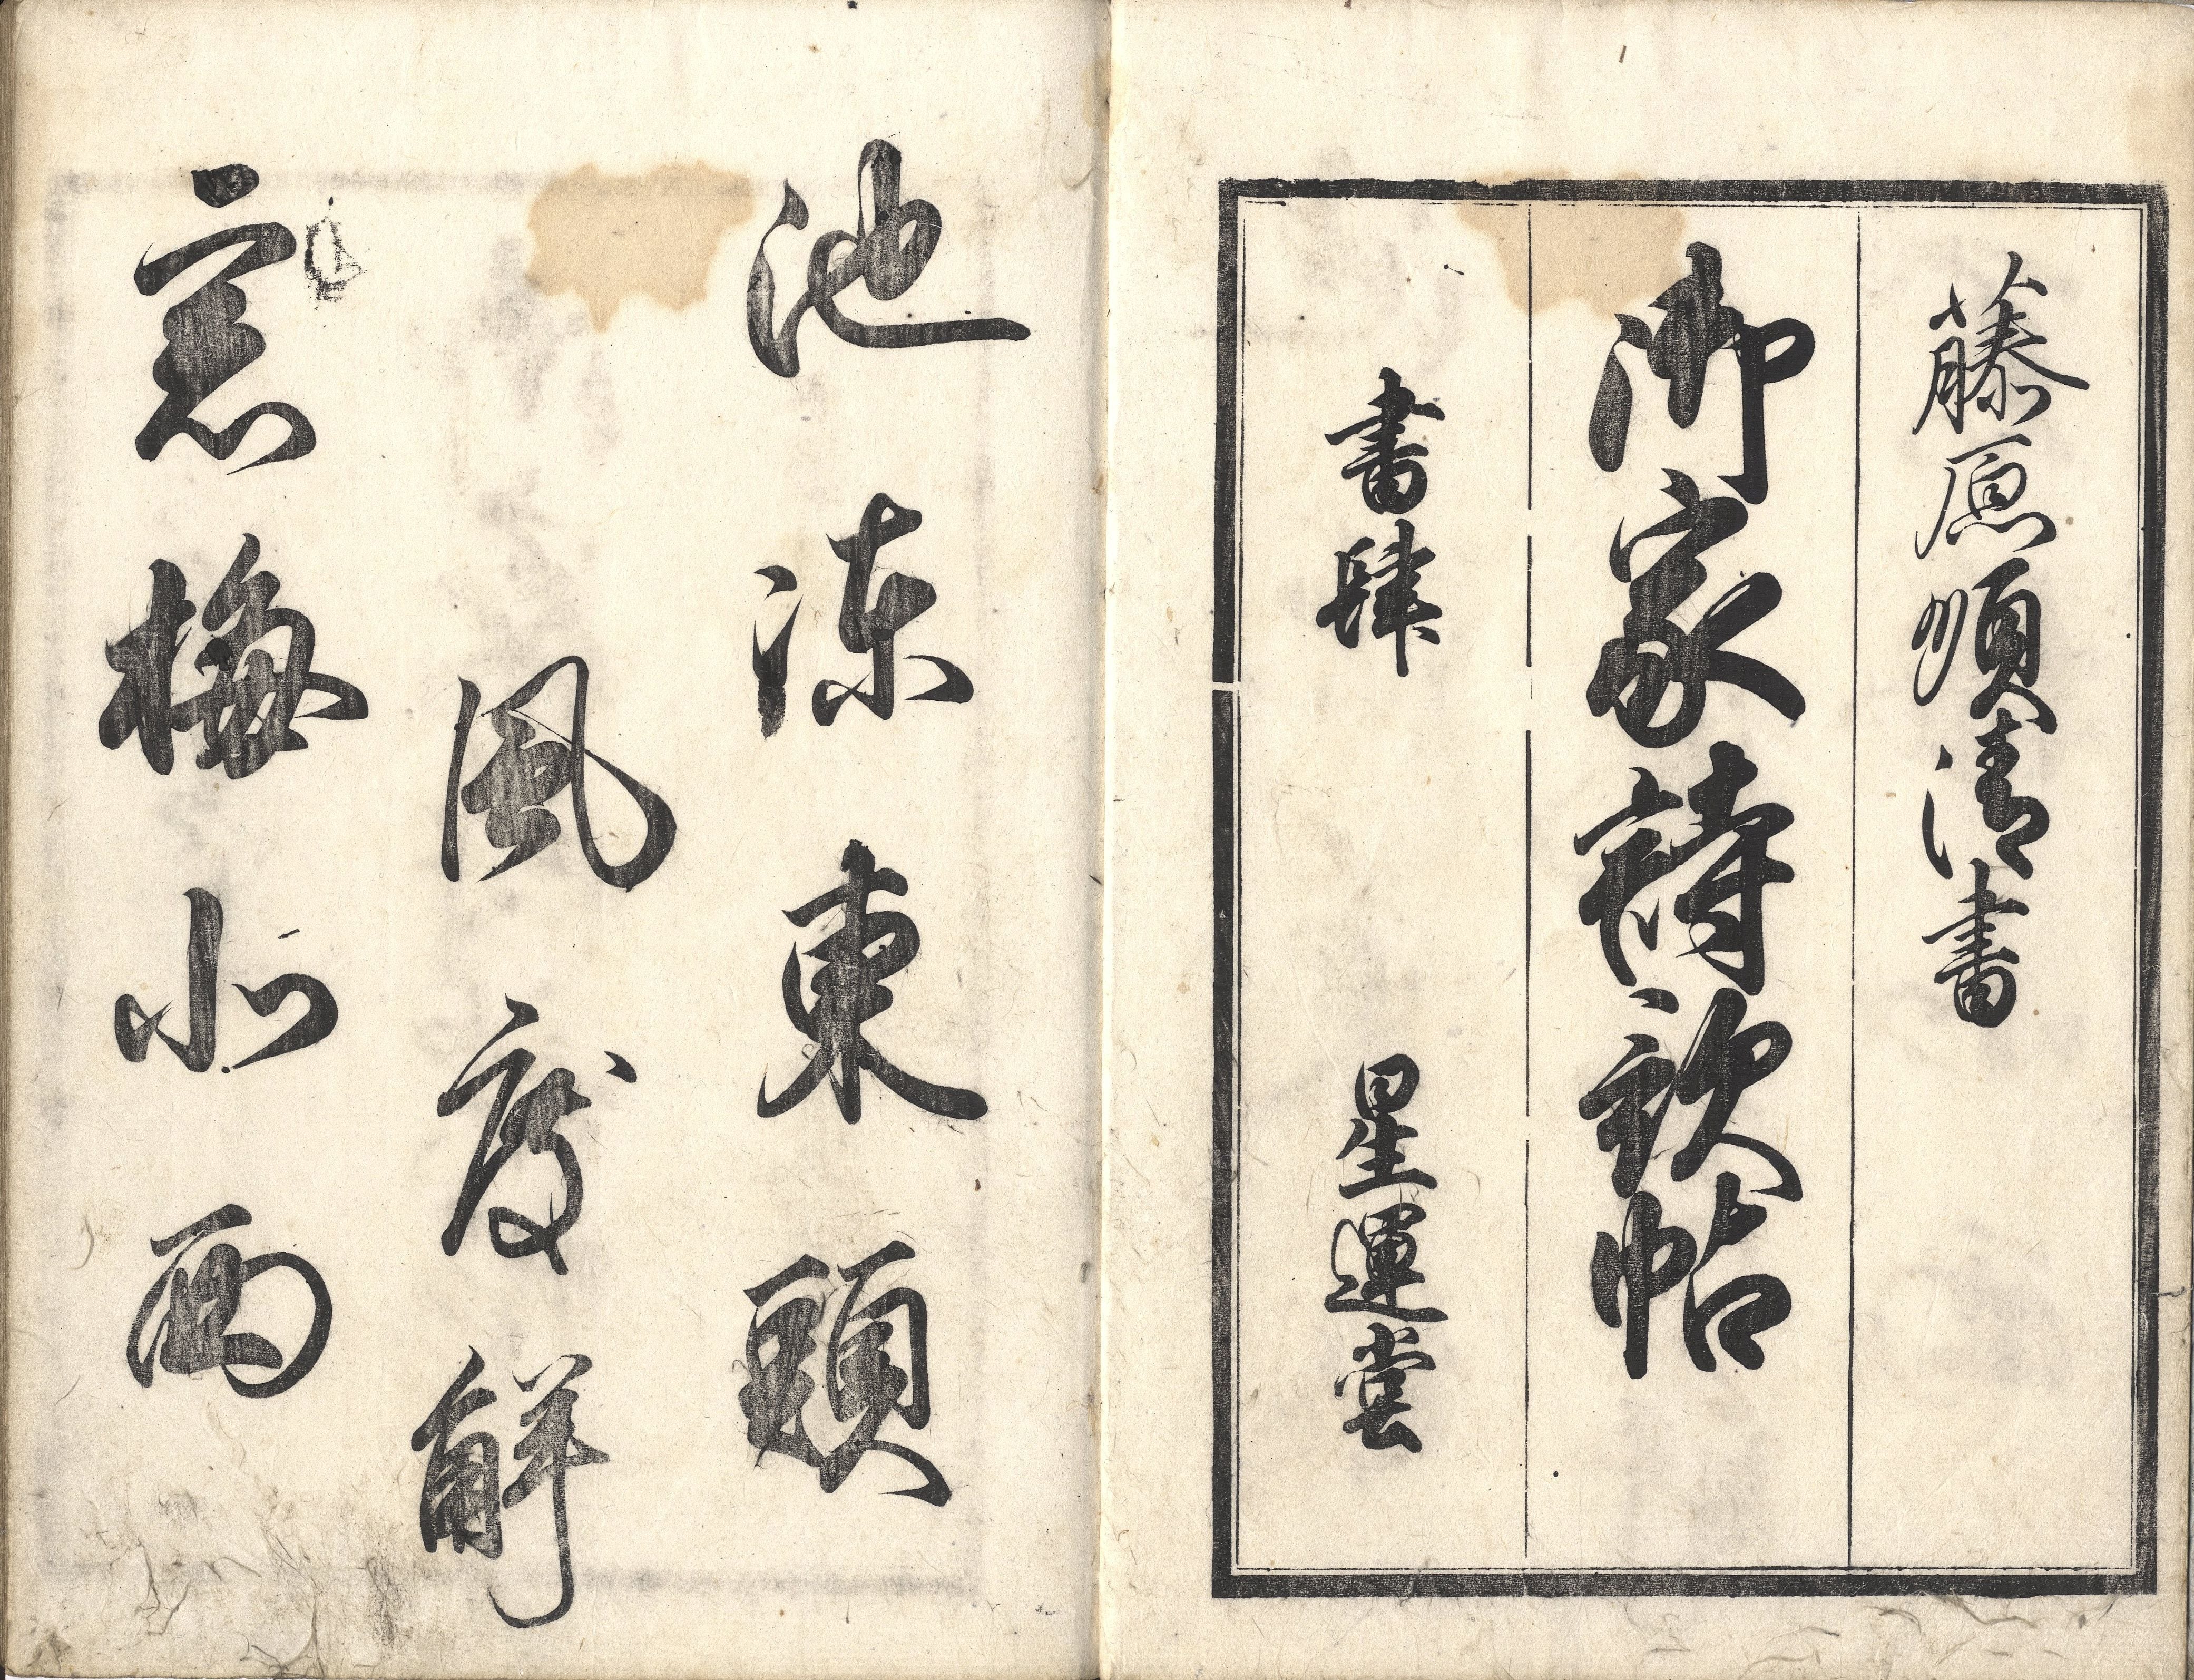 藤原順清書
御家詩歌帖
書肆　星運堂
池凍東頭
風度解
窓梅北面